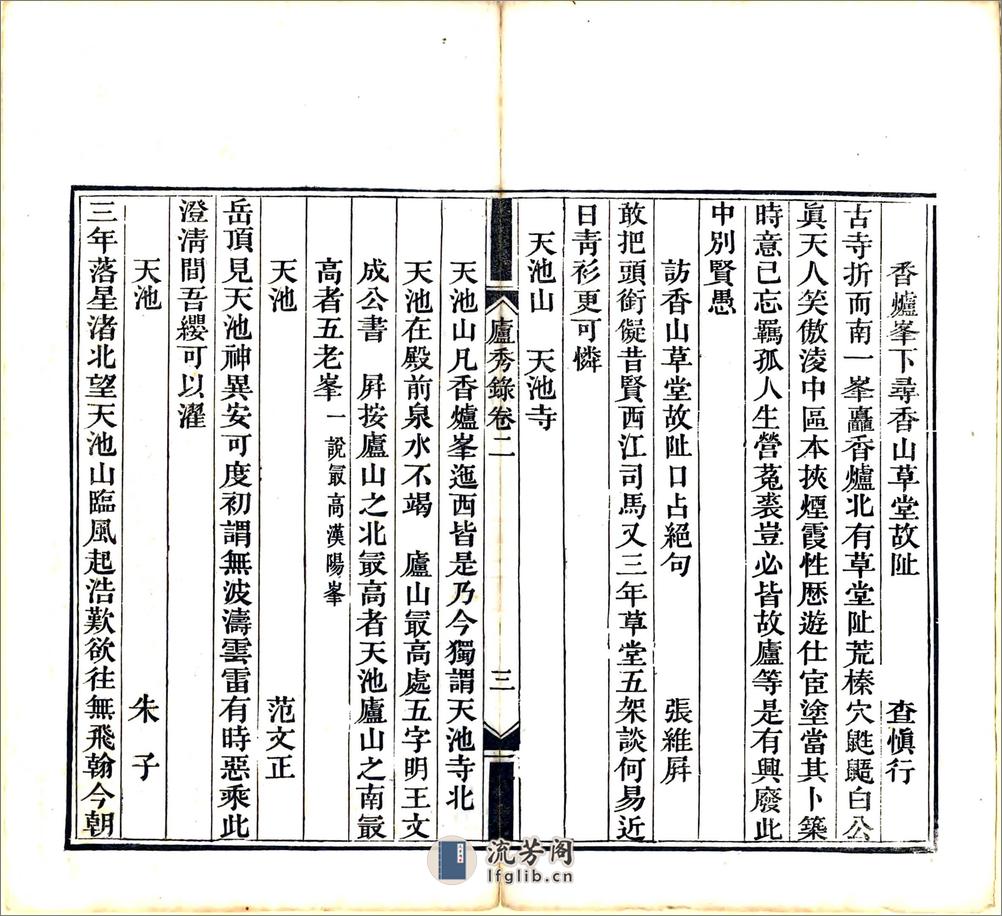 香爐峯下尋香山草堂故阯 查愼行
古寺折而南一峯矗香爐北有草堂阯荒榛穴鼪鼯白公
眞天人笑傲淩中區本挾煙霞性歷遊仕宦塗當其卜築
時意已忘羈孤人生營菟裘豈必皆故廬等是有興廢此
中別賢愚
訪香山草堂故阯口占絕句 張維屛
敢把頭銜儗昔賢西江司馬又三年草堂五架談何易近
日靑衫更可憐
天池山 天池寺
廬秀錄卷二 三
天池山凡香爐峯迤西皆是乃今獨謂天池寺北
天池在殿前泉水不竭 廬山冣高處五字明王文
成公書 屛按廬山之北冣高者天池廬山之南冣
高者五老峯一說冣高漢陽峯
天池 范文正
岳頂見天池神異安可度初謂無波濤雲雷有時惡乘此
澄淸間吾纓可以濯
天池 朱子
三年落星渚北望天池山臨風起浩歎欲往無飛翰今朝
流芳阁
lfglib.cn